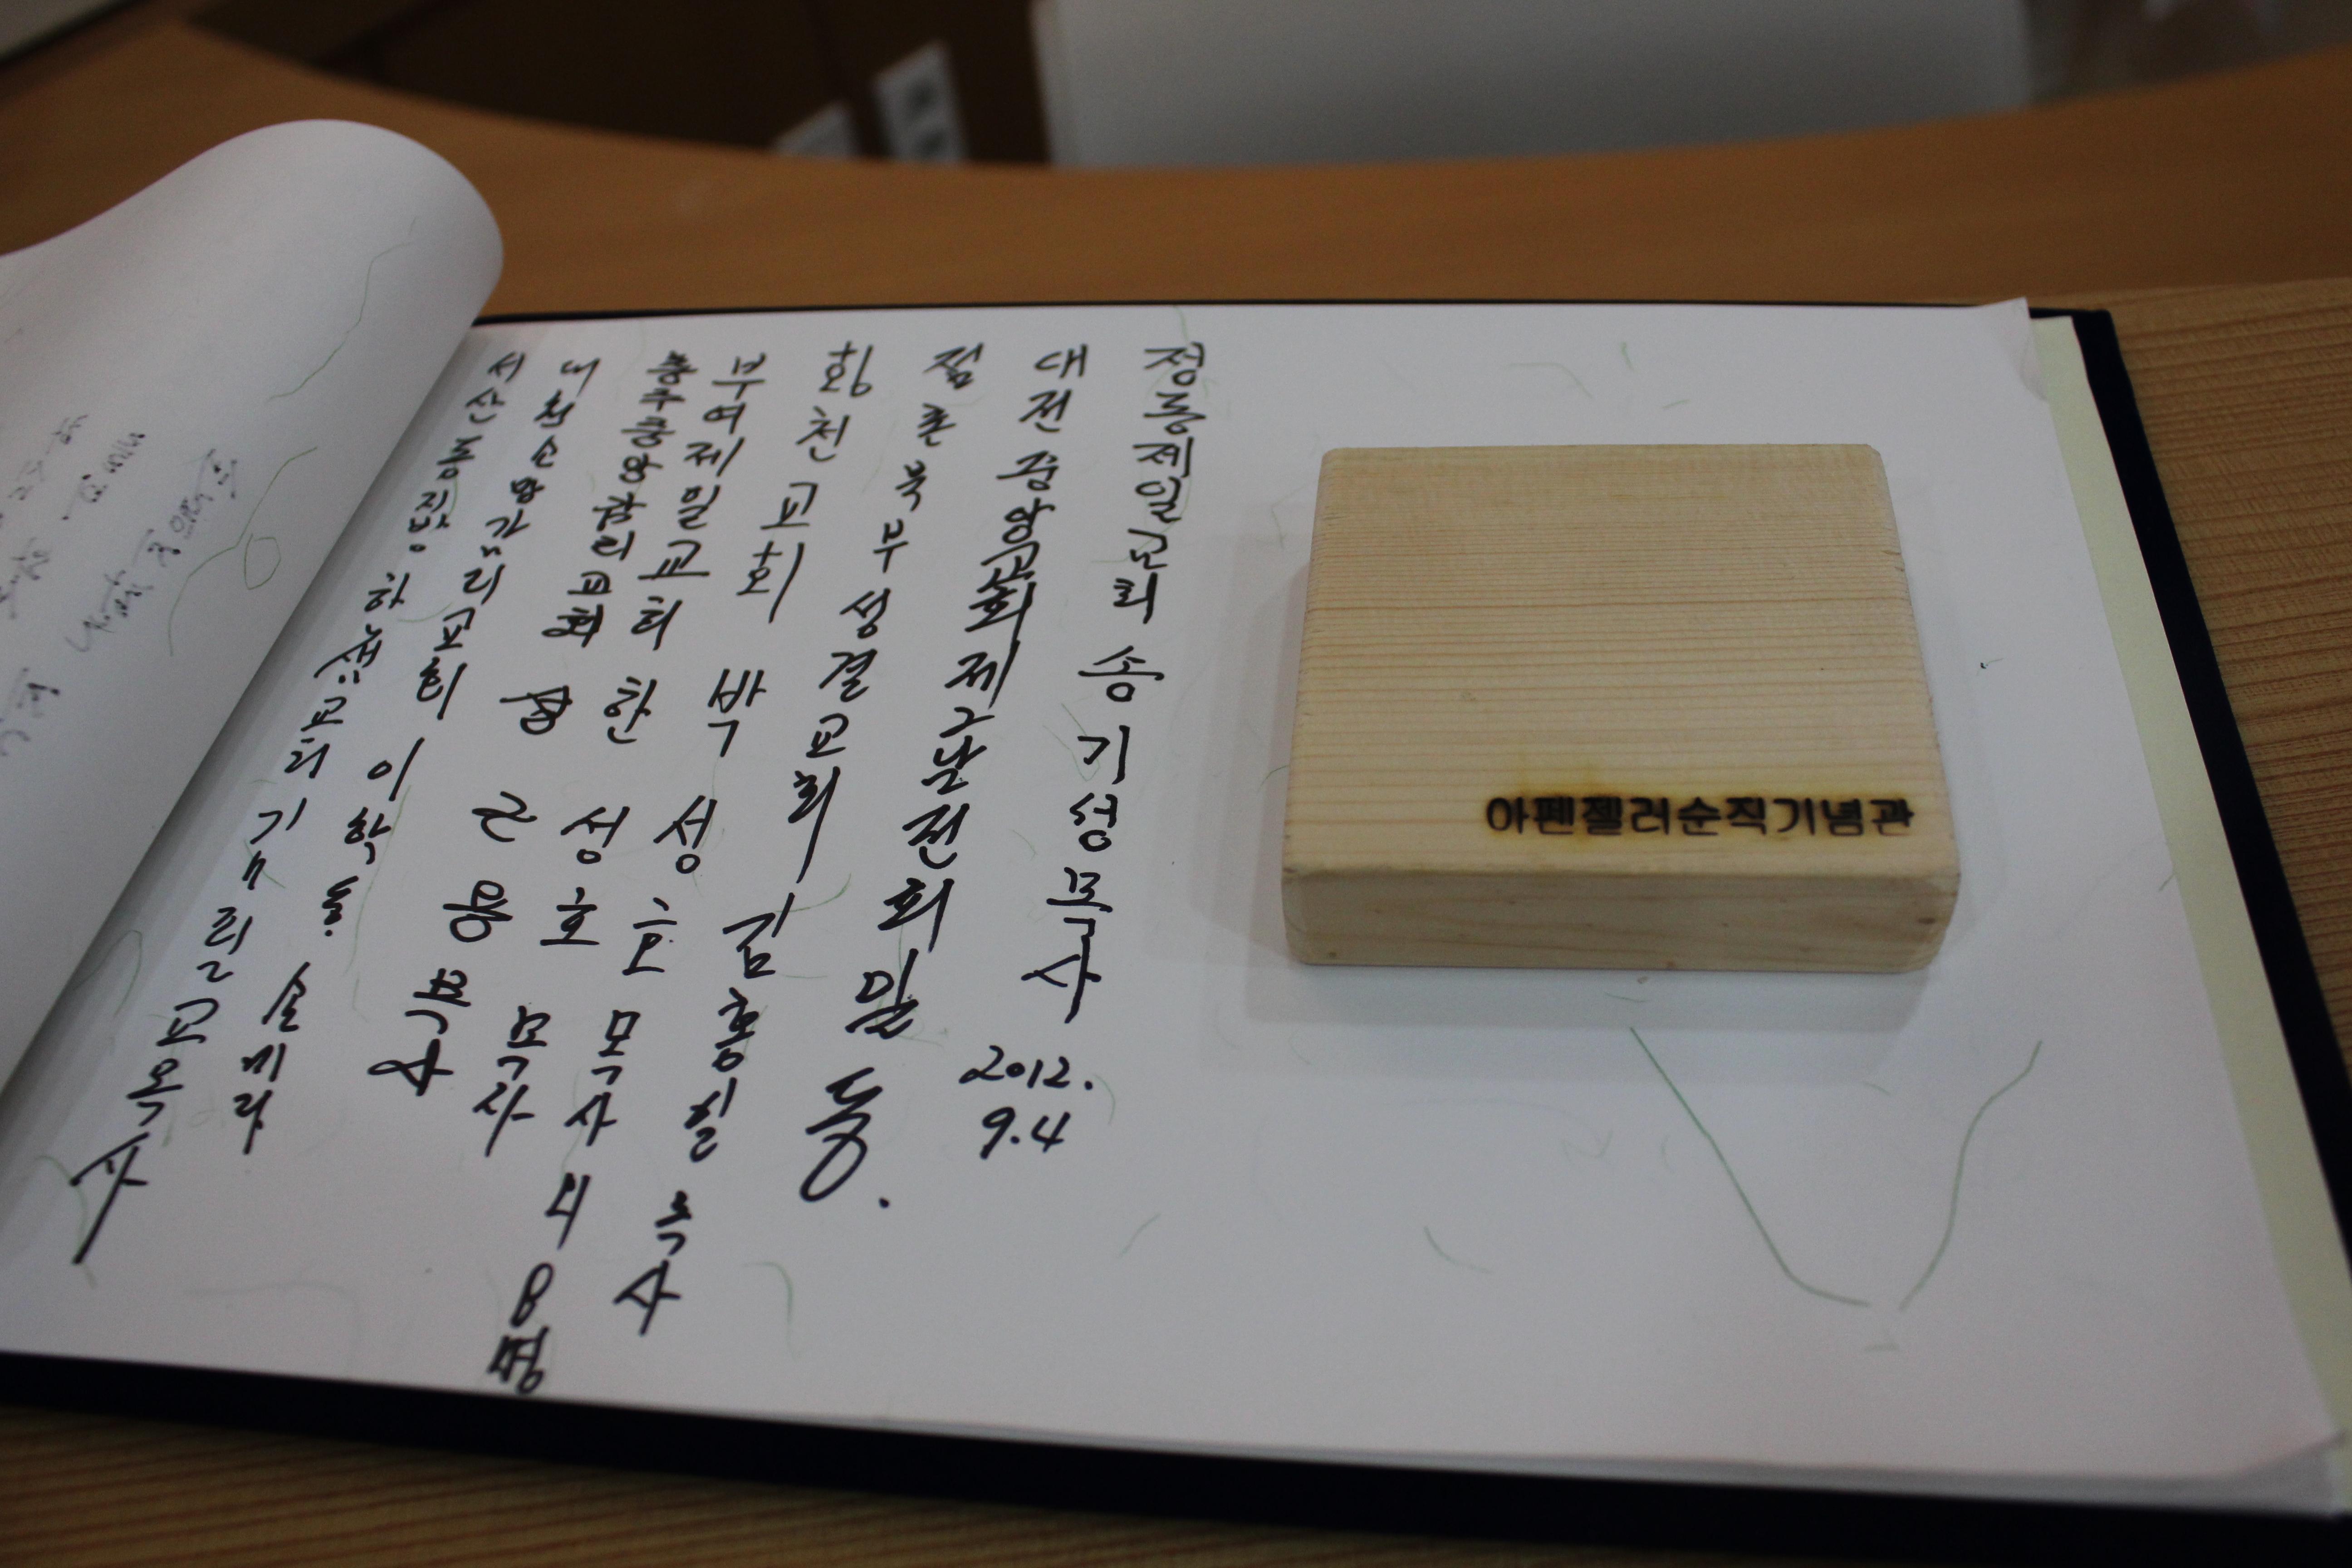 정동제일교회 송기성 목사
2012.
9.4
대전중앙교회 제2남전회 일동.
점촌북부성결교회 김홍일 목사
황천교회 박성호 목사 외 8명
부여제일교회 한성호 목사
충주중앙감리교회 근용
내천소망감리교회 이학동 손미라
서산동지방 하늘샘교회 김 목사
아펜젤러순직기념관